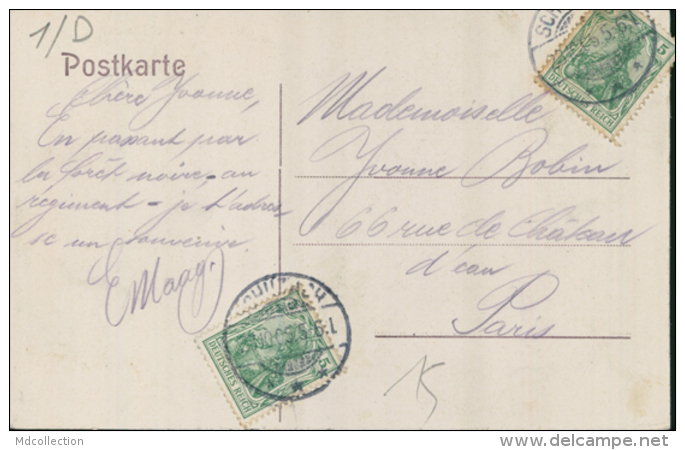 1/D
Postkarte
Chère Yvonne,
En passant par
la forêt noire - au
régiment - je t'adres
se un souvenir
EMaag.
Mademoiselle
Yvonne Bobin
66 rue de Château
d'eau
Paris
15
5
DEUTSCHES REICH
5
DEUTSCHES REICH
Mdcollection
www.delcampe.net